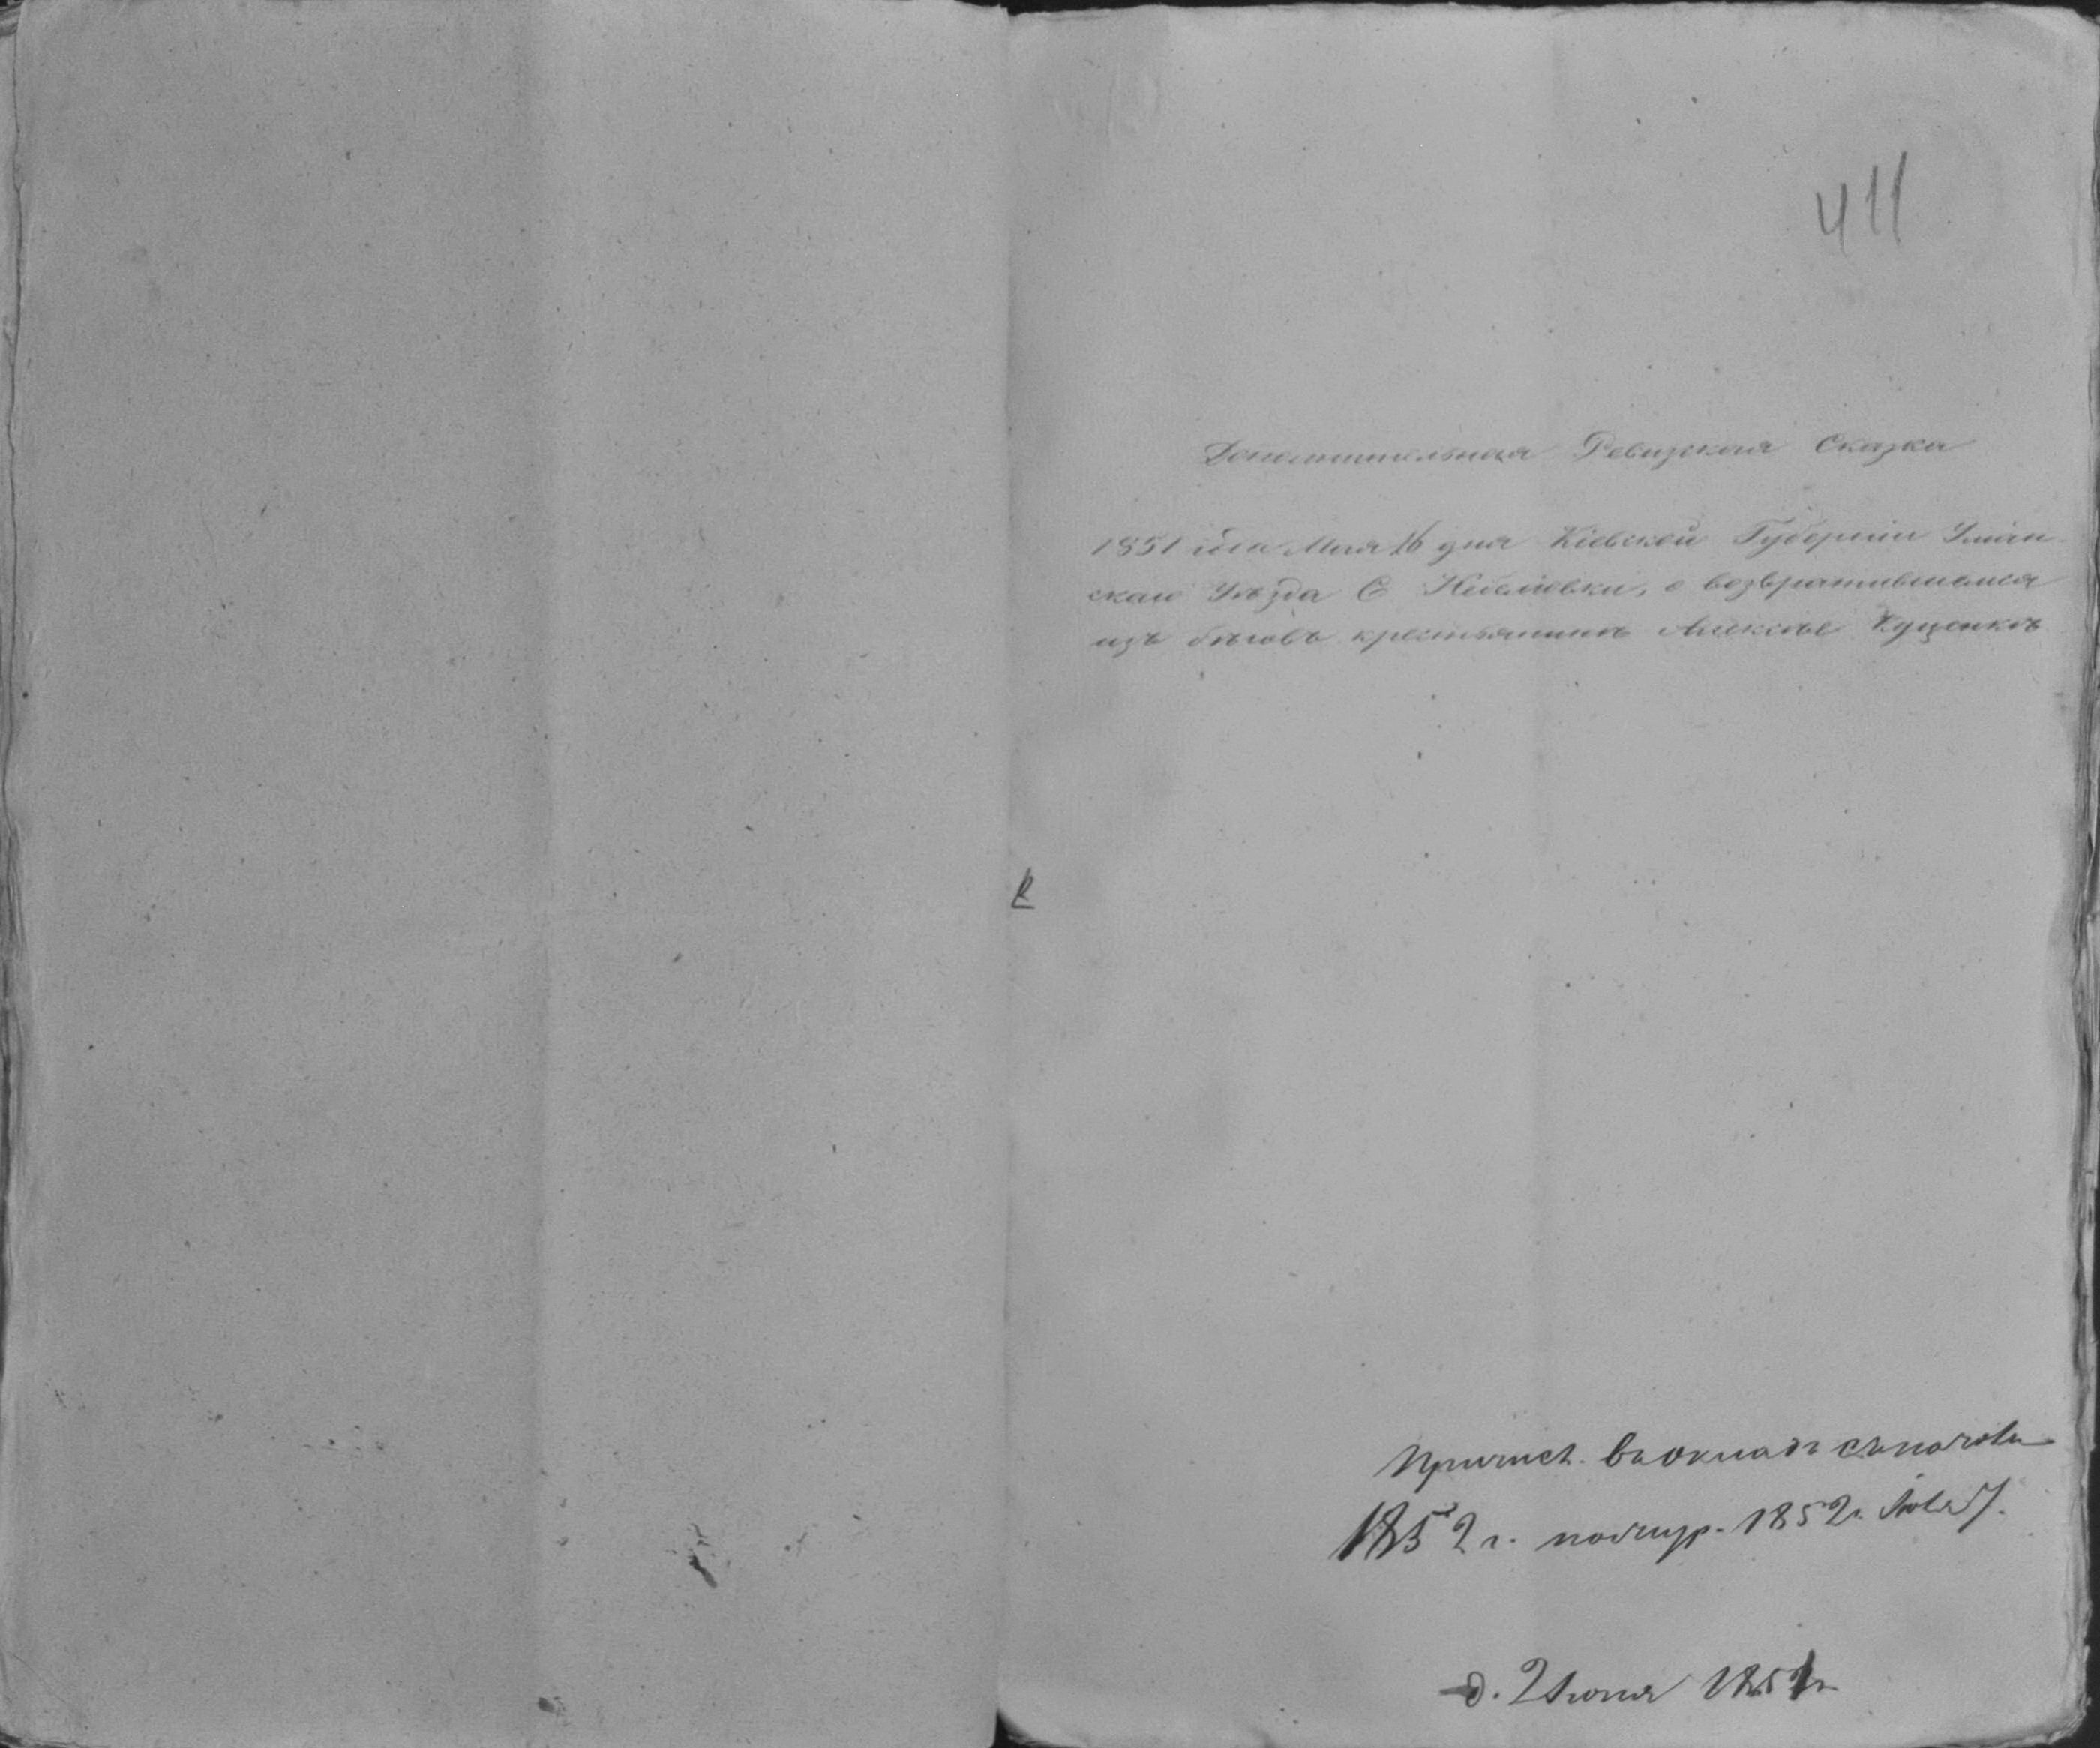 411
Дополнительная Ревизская Сказка
1851 года Мая 16 дня Кіевской Губерніи Уман-
скаго Уѣзда С. Кобеловки, о возвратившемся
изъ бѣговъ крестьянинѣ Алексѣе Куценкѣ
Причисл. въ окладъ съ полов.
1852 г. 1852 г.
д. 2 Іюня 1851 г.